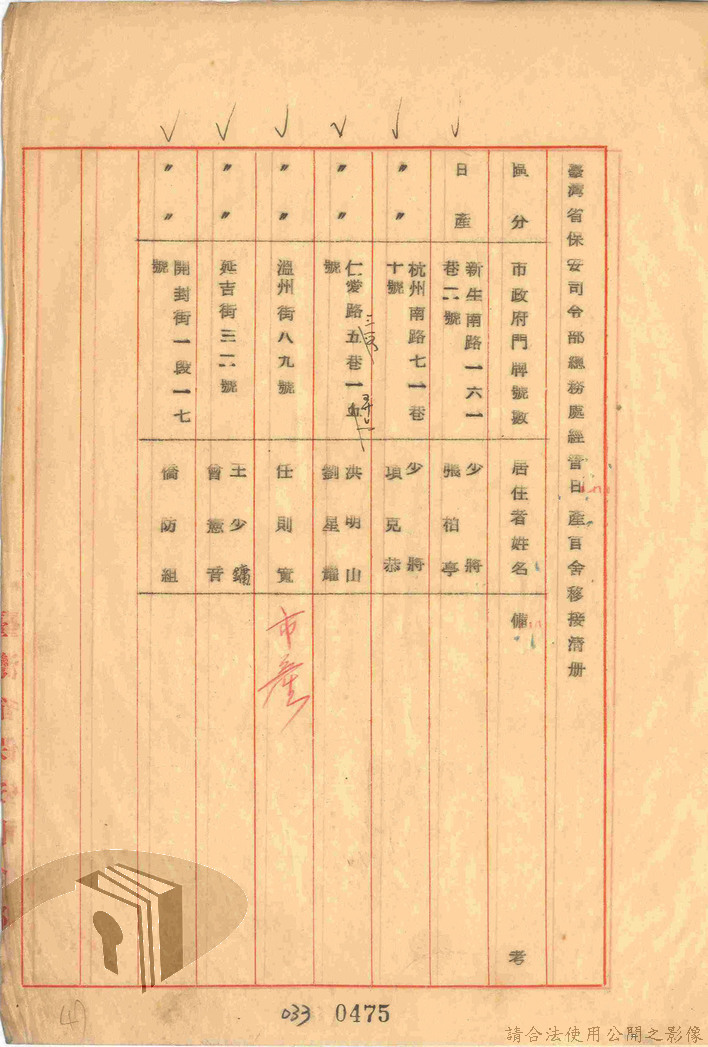 臺灣省保安司令部總務處經管日產官舍移接清册
區分
市政府門牌號數
居住者姓名
備考
日產
新生南路一六一
巷二號
少將
張柏亭
〃〃
杭州南路七一巷
十號
少將
項克恭
〃〃
仁愛路五巷一五
號
洪明山
劉星耀
〃〃
溫州街八九號
任則實
市產
〃〃
延吉街三二號
王少鏞
曾憲音
〃〃
開封街一段一七
號
僑防組
033 0475
請合法使用公開之影像